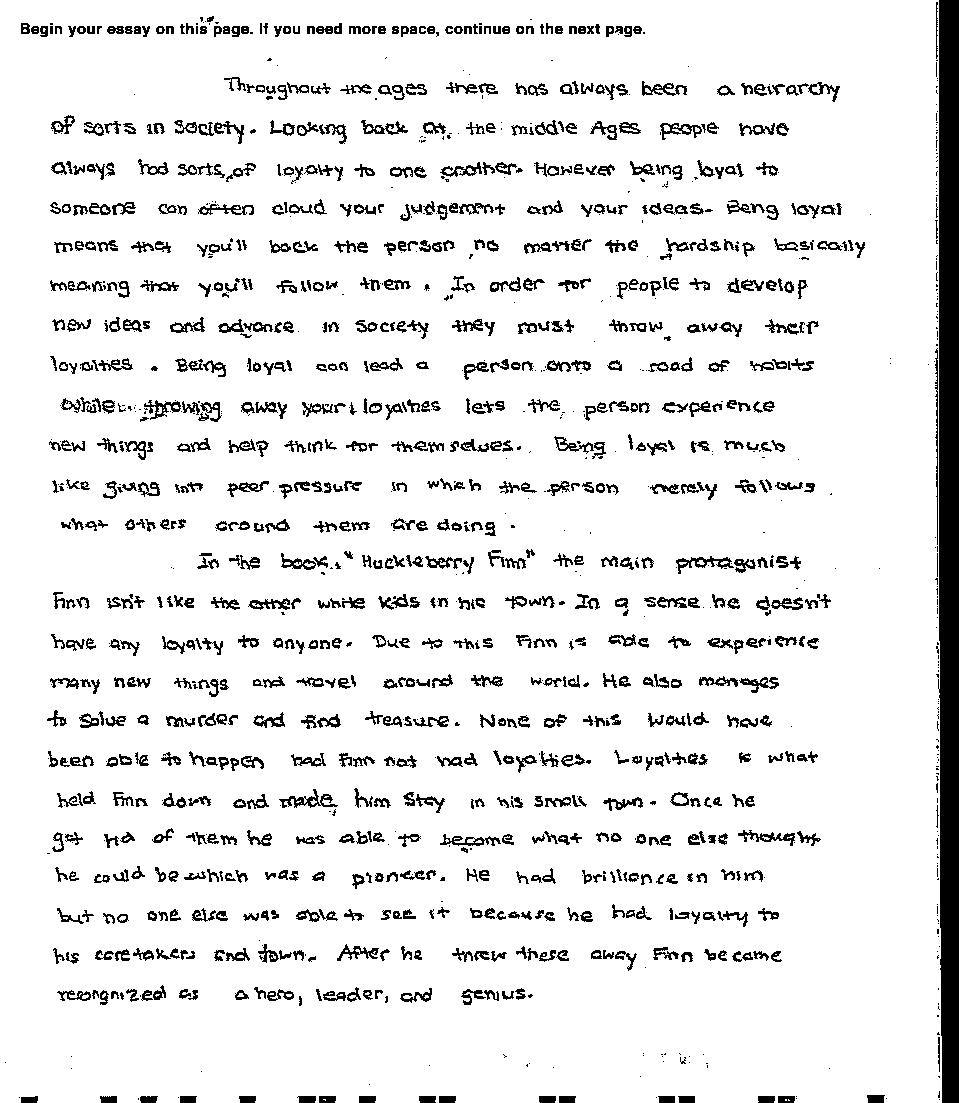 Begin your essay on this page. If you need more space, continue on the next page.
Throughout the ages there has always been a heirarchy
of sorts in Society. Looking back at the middle Ages people have
always had sorts of loyalty to one another. However being loyal to
someone can often cloud your judgement and your ideas. Being loyal
means that you'll back the person no matter the hardship basically
meaning that you'll follow them. In order for people to develop
new ideas and advance in Society they must throw away their
loyalties. Being loyal can lead a person onto a road of habits
while throwing away your loyalties lets the person experience
new things and help think for themselves. Being loyal is much
like giving into peer pressure in which the person merely follows
what others around them are doing.
In the book, "Huckleberry Finn" the main protagonist
Finn isn't like the other white kids in his town. In a sense he doesn't
have any loyalty to anyone. Due to this Finn is able to experience
many new things and travel around the world. He also manages
to Solve a murder and find treasure. None of this would have
been able to happen had Finn not had loyalties. Loyalties is what
held Finn down and made him Stay in his small town. Once he
got rid of them he was able to become what no one else thought
he could be which was a pioneer. He had brilliance in him
but no one else was able to see it because he had loyalty to
his caretakers and town. After he threw these away Finn became
recongnized as a hero, leader, and genius.